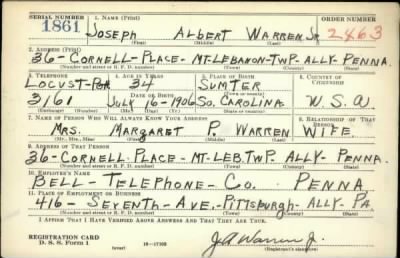 SERIAL NUMBER 1. NAME (Print) ORDER NUMBER
1861 JOSEPH ALBERT WARREN JR 2863
(First) (Middle) (Last)
2. ADDRESS (Print)
36-CORNELL-PLACE-MT-LEBANON-TWP-ALLY-PENNA.
(Number and street or R. F. D. number) (Town) (County) (State)
3. TELEPHONE 4. AGE IN YEARS 5. PLACE OF BIRTH 6. COUNTRY OF CITIZENSHIP
LOCUST-PGH 34 SUMTER
DATE OF BIRTH (Town or county)
3161 JULY 16-1906 SO. CAROLINA U.S.A.
(Exchange) (Number) (Mo.) (Day) (Yr.) (State or country)
7. NAME OF PERSON WHO WILL ALWAYS KNOW YOUR ADDRESS 8. RELATIONSHIP OF THAT PERSON
MRS. MARGARET P. WARREN WIFE
(Mr., Mrs., Miss) (First) (Middle) (Last)
9. ADDRESS OF THAT PERSON
36-CORNELL-PLACE-MT-LEB.TWP. ALLY-PENNA.
(Number and street or R. F. D. number) (Town) (County) (State)
10. EMPLOYER'S NAME
BELL TELEPHONE-CO. PENNA
11. PLACE OF EMPLOYMENT OR BUSINESS
416-SEVENTH-AVE.-PITTSBURGH-ALLY-PA.
(Number and street or R. F. D. number) (Town) (County) (State)
I AFFIRM THAT I HAVE VERIFIED ABOVE ANSWERS AND THAT THEY ARE TRUE.
REGISTRATION CARD
D. S. S. Form 1 (over) 16-17105 J A Warren Jr.
(Registrant's signature)